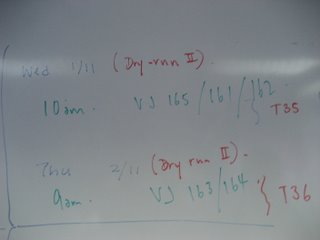 Wed 1/11 (Dry-run II).
10am. VJ 165/161/162 } T35
Thu 2/11 (Dry run II).
9am. VJ 163/164. } T36